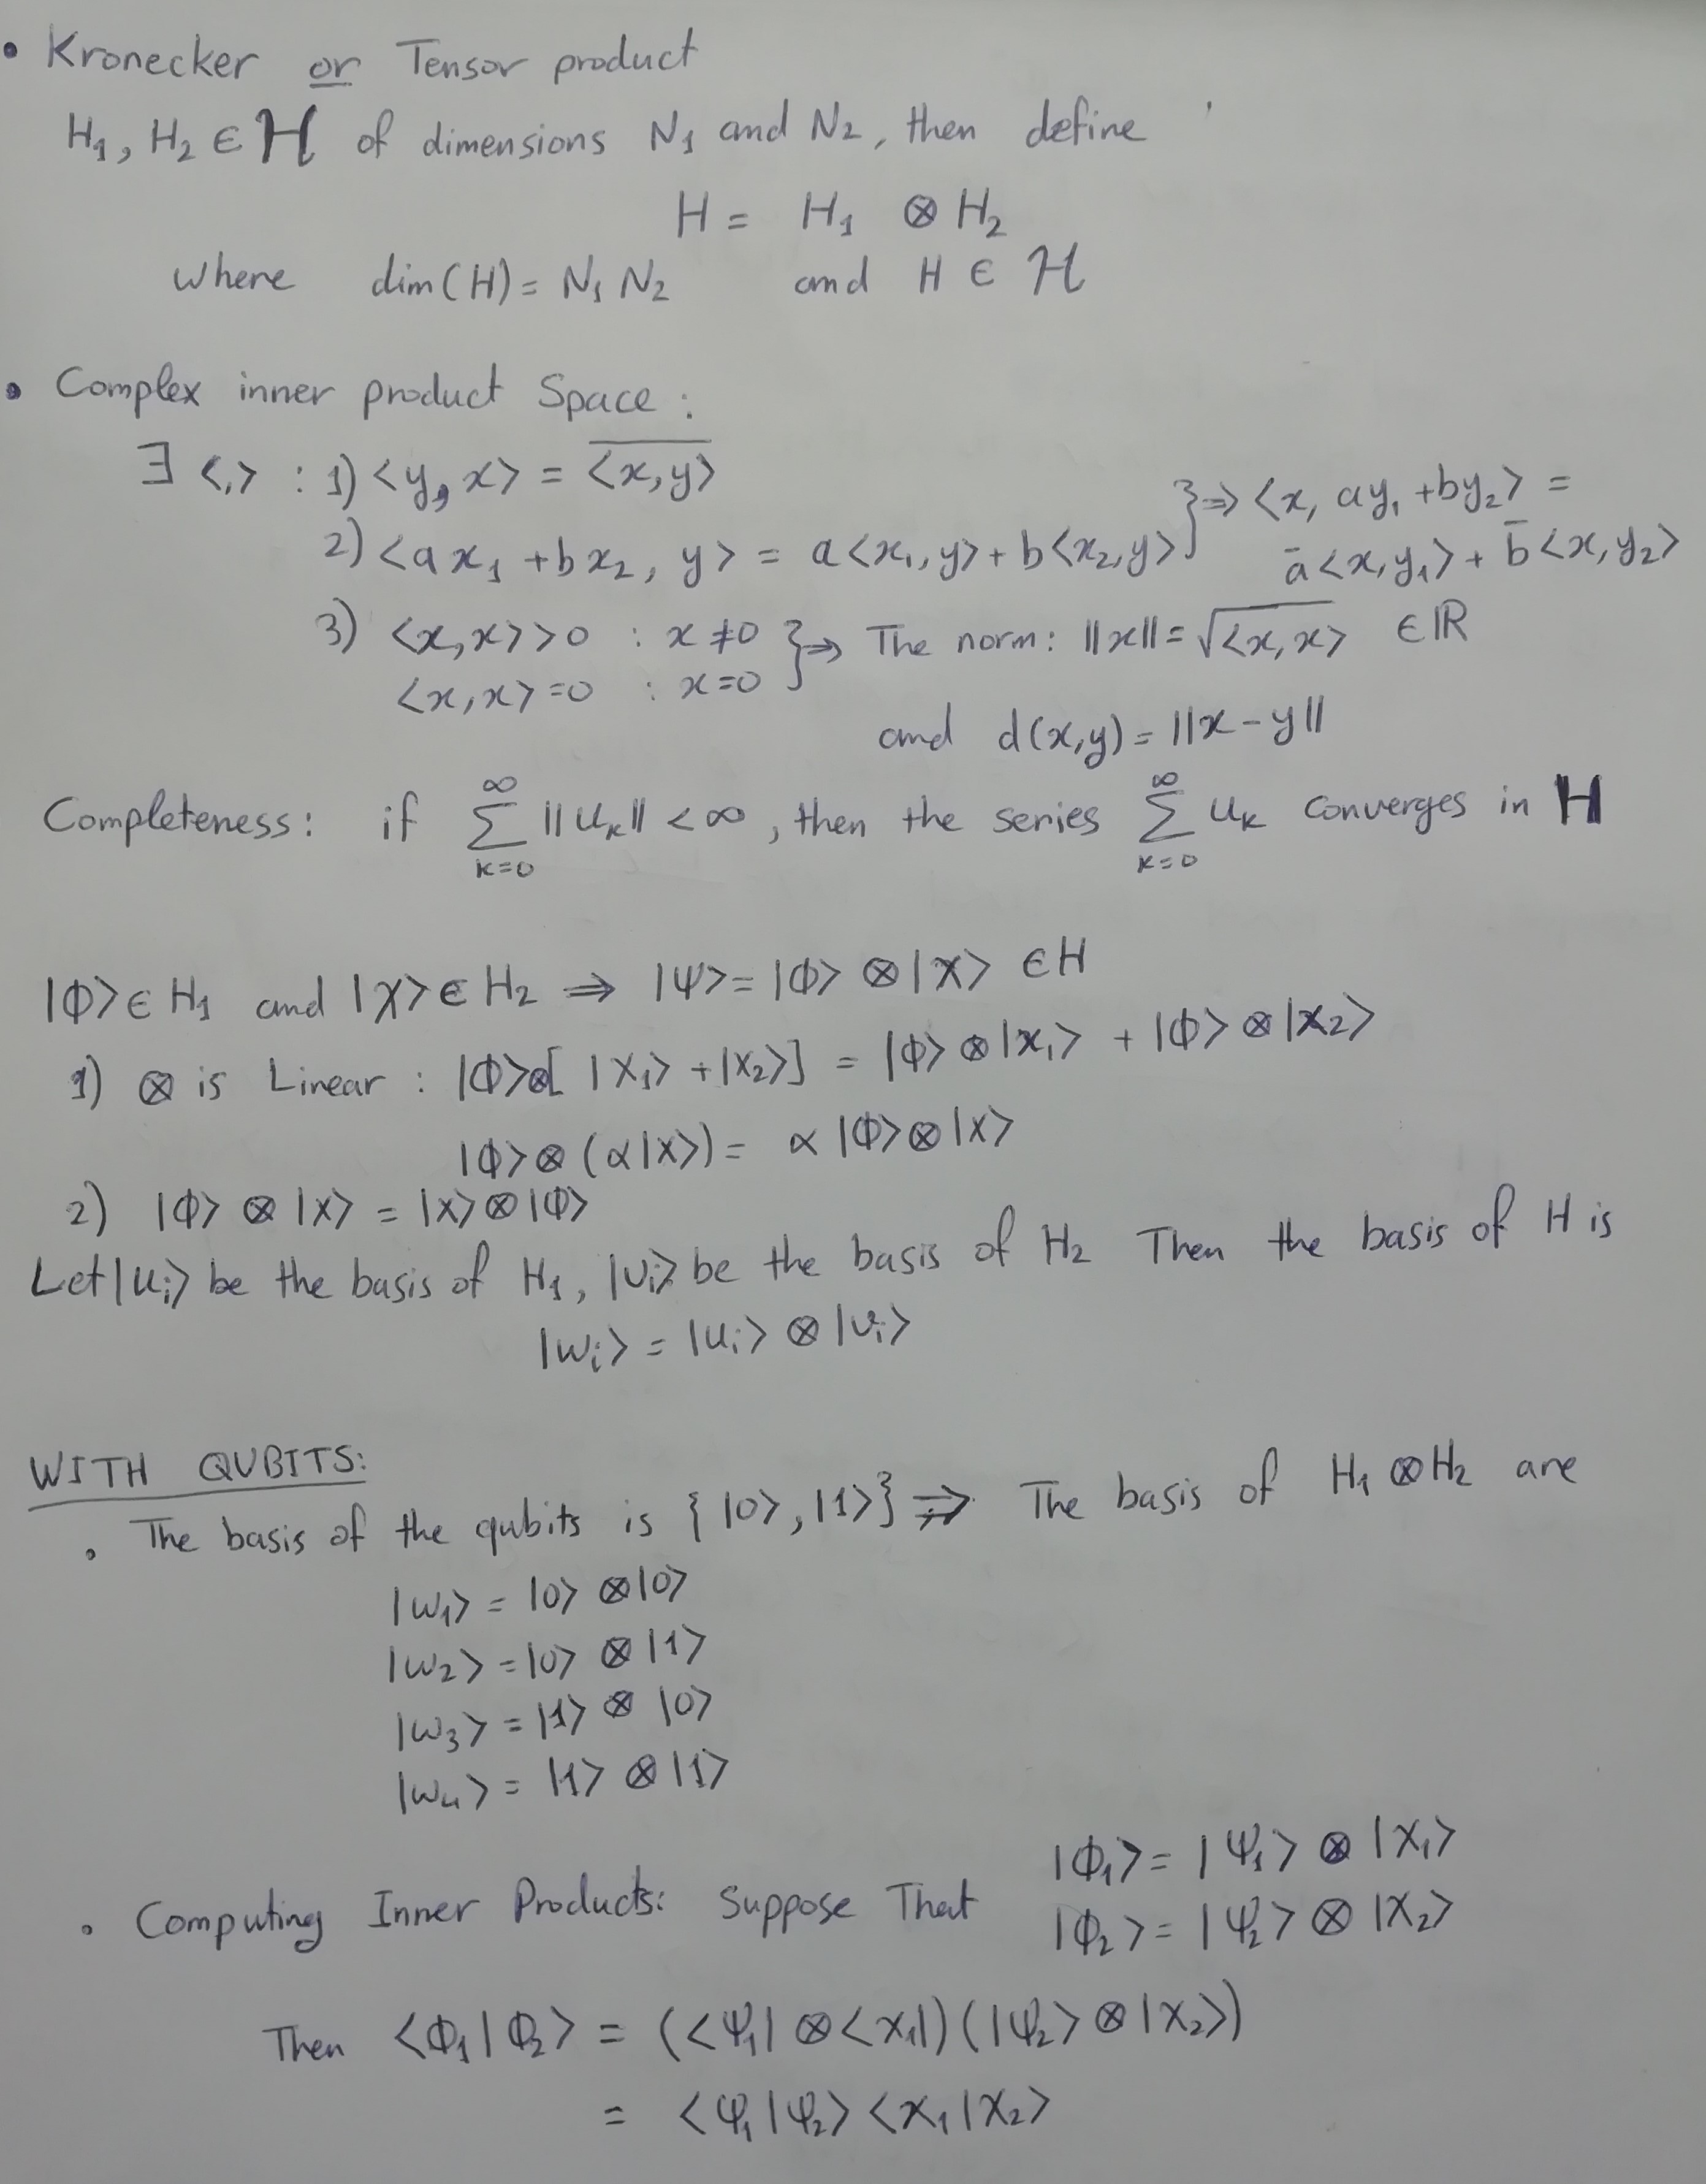 • Kronecker or Tensor product
H₁, H₂ ∈ ℋ of dimensions N₁ and N₂, then define
H = H₁ ⊗ H₂
where dim(H) = N₁ N₂ and H ∈ ℋ
• Complex inner product Space:
∃ <,> : 1) <y, x> = \overline{<x,y>}
2) <a x₁ + b x₂, y> = a<x₁,y> + b<x₂,y> } ⇒ <x, ay₁ + by₂> =
ā<x,y₁> + b̄<x,y₂>
3) <x,x> > 0 : x ≠ 0 } ⇒ The norm: ||x|| = √<x,x> ∈ ℝ
<x,x> = 0 : x = 0
and d(x,y) = ||x − y||
Completeness: if ∑_{k=0}^{∞} ||u_k|| < ∞, then the series ∑_{k=0}^{∞} u_k converges in H
|ϕ> ∈ H₁ and |χ> ∈ H₂ ⇒ |ψ> = |ϕ> ⊗ |χ> ∈ H
1) ⊗ is Linear : |ϕ> ⊗ [ |χ₁> + |χ₂> ] = |ϕ> ⊗ |χ₁> + |ϕ> ⊗ |χ₂>
|ϕ> ⊗ (α|χ>) = α |ϕ> ⊗ |χ>
2) |ϕ> ⊗ |χ> = |χ> ⊗ |ϕ>
Let |u_i> be the basis of H₁, |v_i> be the basis of H₂ Then the basis of H is
|w_i> = |u_i> ⊗ |v_i>
WITH QUBITS:
• The basis of the qubits is { |0>, |1> } ⇒ The basis of H₁ ⊗ H₂ are
|w₁> = |0> ⊗ |0>
|w₂> = |0> ⊗ |1>
|w₃> = |1> ⊗ |0>
|w₄> = |1> ⊗ |1>
|ϕ₁> = |ψ₁> ⊗ |χ₁>
• Computing Inner Products: Suppose That
|ϕ₂> = |ψ₂> ⊗ |χ₂>
Then <ϕ₁|ϕ₂> = (<ψ₁| ⊗ <χ₁|) (|ψ₂> ⊗ |χ₂>)
= <ψ₁|ψ₂> <χ₁|χ₂>